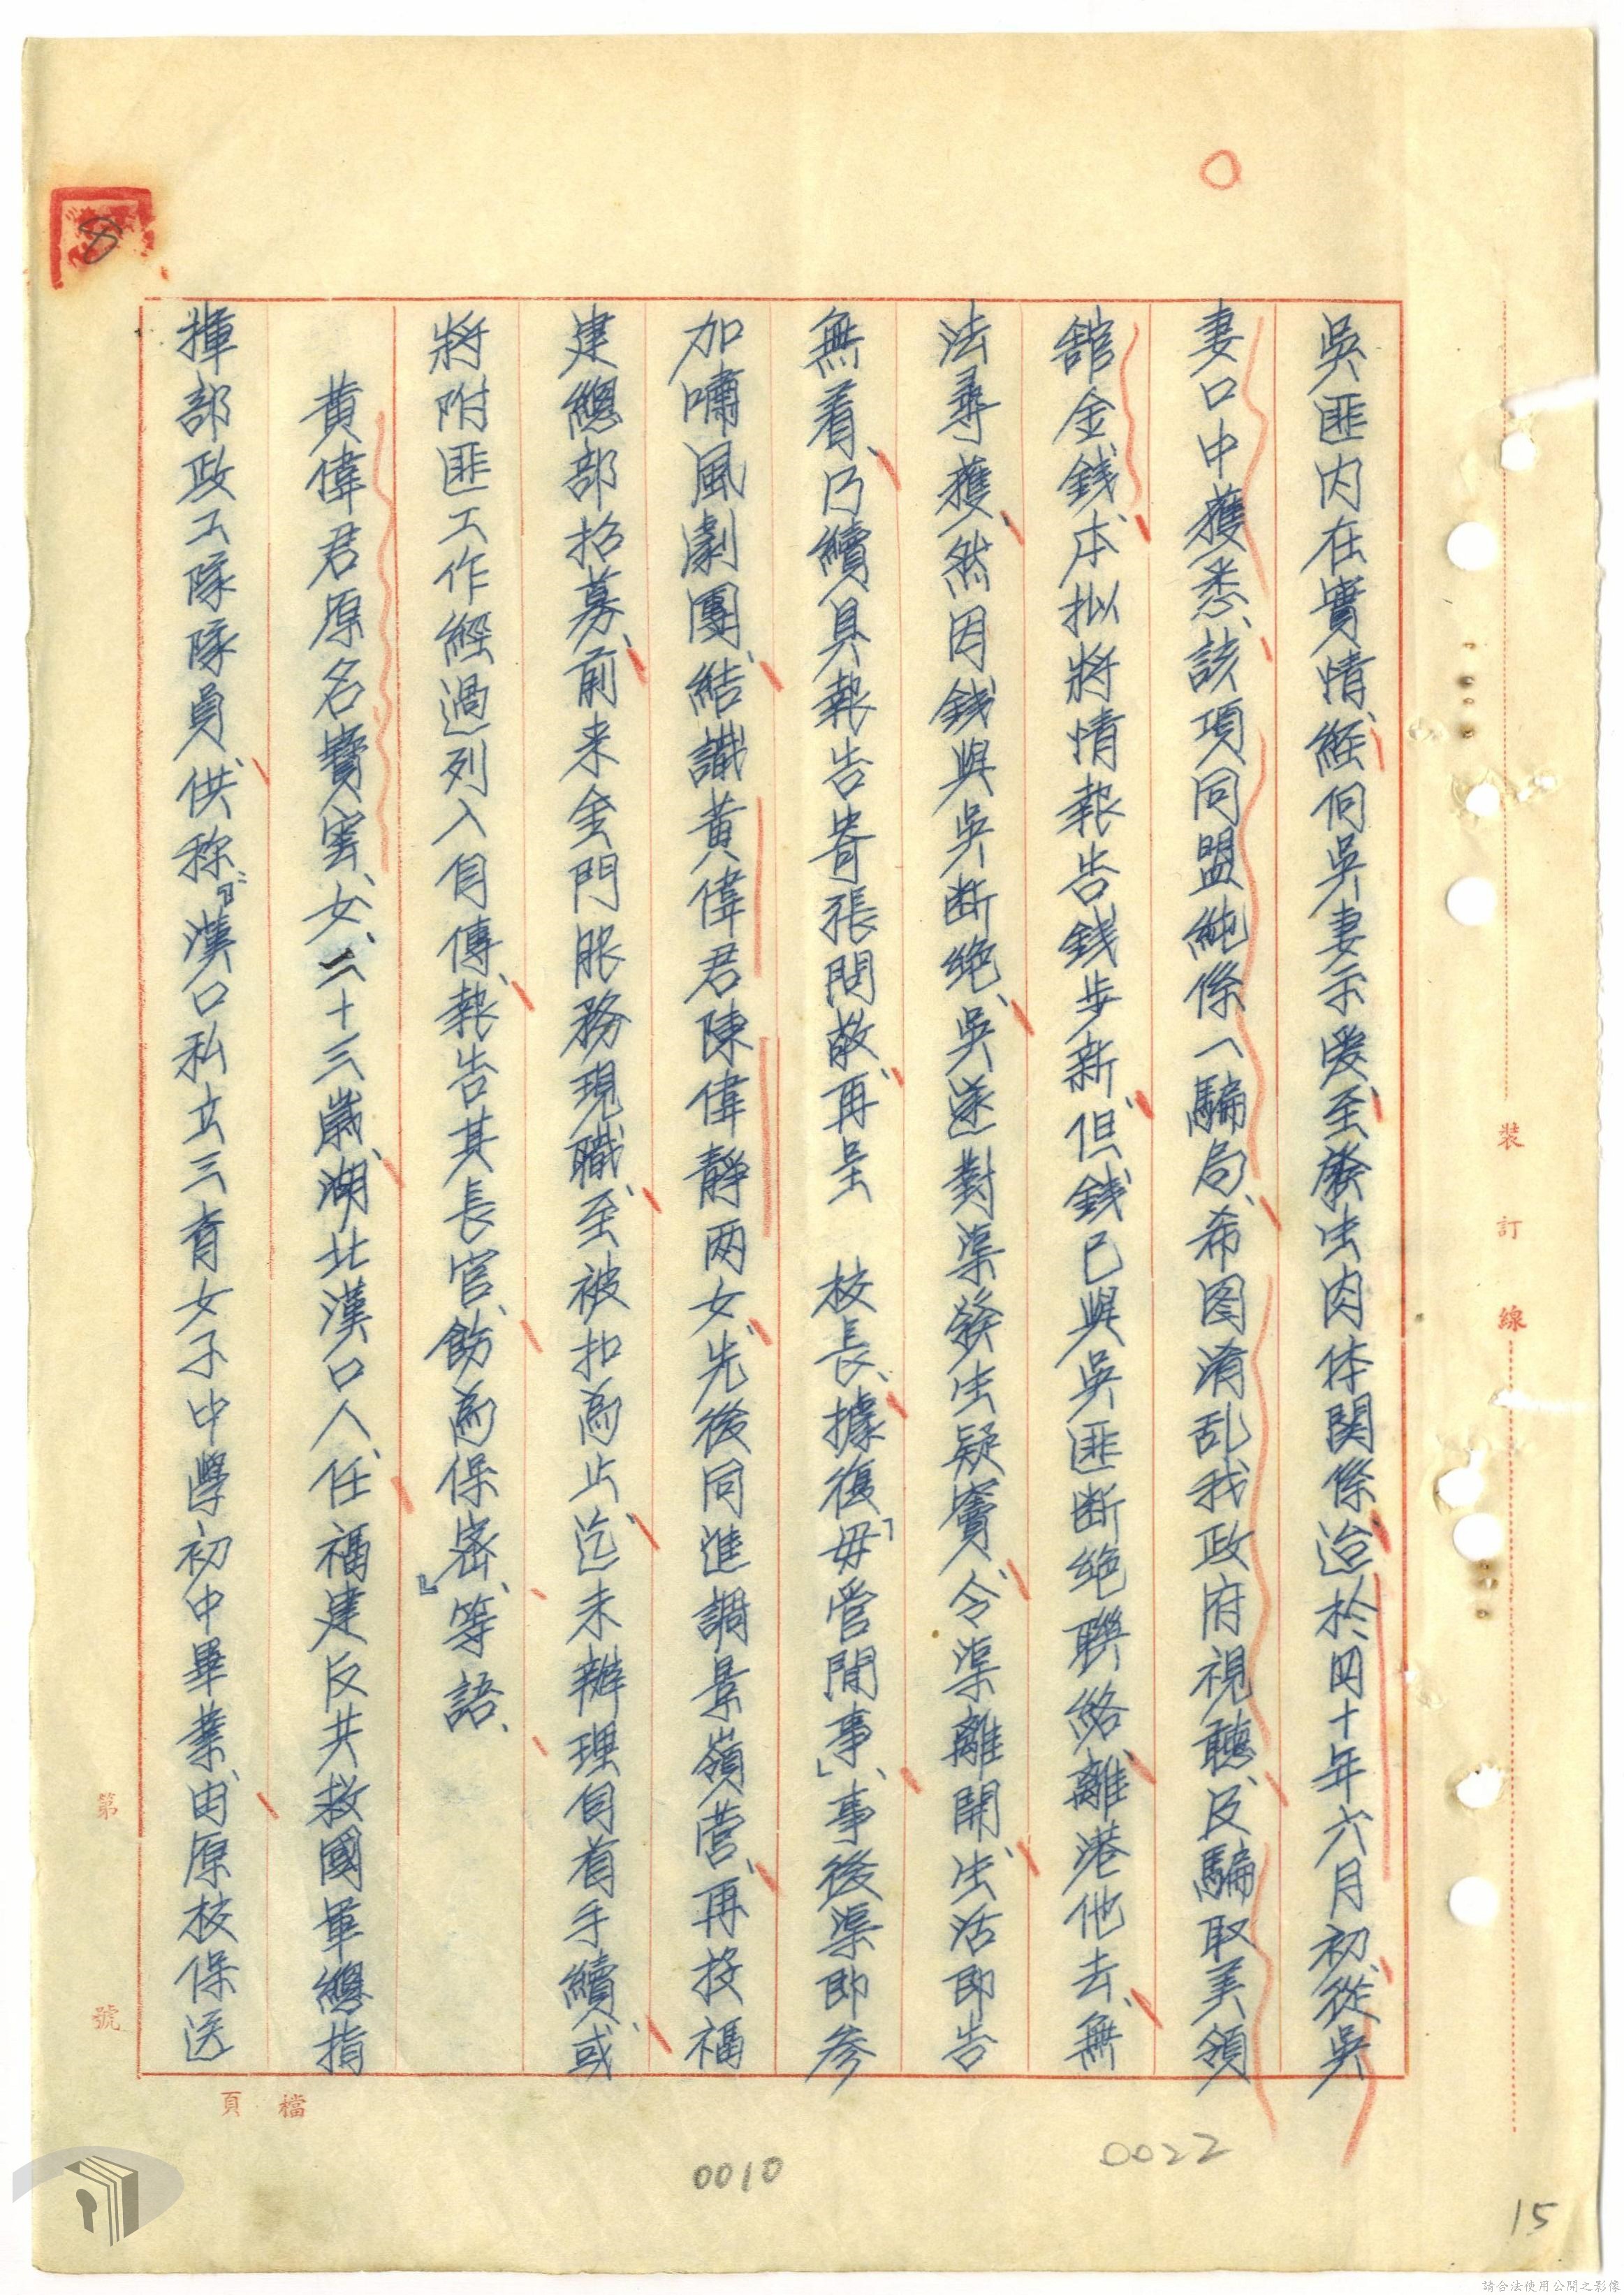 吳匪內在實情、經伺吳妻示爱、至發生肉体関係、迨於四十年六月初、從吳
妻口中獲悉、該項同盟純係一騙局、希图淆乱我政府視聽、及騙取美領
舘金錢、本拟將情報告錢步新、但錢已與吳匪断絶聯絡、離港他去、無
法尋獲、然因錢與吳断絶、吳遂對渠發生疑竇、令渠離開、生活即告
無着、乃續具報告寄張問敬、再呈　校長、據復「毋管閒事」、事後渠即参
加嘯風劇團、結識黃偉君陳偉靜兩女、先後同進調景嶺營、再投福
建總部招募、前来金門服務現職、至被扣為止、迄未辦理自首手續、或
將附匪工作經過列入自傳、報告其長官、飭為保密、』等語、
黃偉君原名寶蜜、女、二十三歲、湖北漢口人、任福建反共救國軍總指
揮部政工隊隊員、供称：『漢口私立三育女子中學初中畢業、由原校保送
裝訂線
第 號
檔 頁
8
0010
0022
15
請合法使用公開之影像